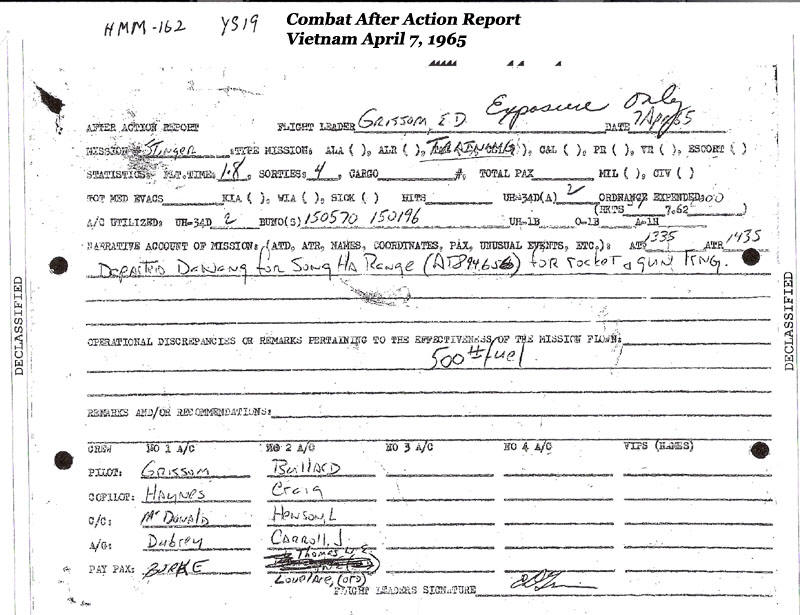 HMM-162 YS19 Combat After Action Report
Vietnam April 7, 1965
Exposure Only
AFTER ACTION REPORT FLIGHT LEADER GRISSOM, ED DATE 7 Apr 65
MISSION # Stinger :TYPE MISSION: ALA ( ), ALR ( ), TRAINING ( ), C&L ( ), PR ( ), VR ( ), ESCORT ( )
STATISTICS: FLT.TIME: 1.8, SORTIES: 4, CARGO #, TOTAL PAX MIL ( ), CIV ( )
TOT MED EVACS KIA ( ), WIA ( ), SICK ( ) HITS UH-34D(A) 2 ORDNANCE EXPENDED
(RKTS 7.62 )
A/C UTILIZED: UH-34D 2 BUNO(S) 150570 150196 UH-1B O-1B A-1H
NARRATIVE ACCOUNT OF MISSION: (ATD, ATR, NAMES, COORDINATES, PAX, UNUSUAL EVENTS, ETC.): 1335 ATR 1435
Departed DaNang for Song Ha Range for rocket & gun TRNG.
OPERATIONAL DISCREPANCIES OR REMARKS PERTAINING TO THE EFFECTIVENESS OF THE MISSION FLOWN:
500# fuel
REMARKS AND/OR RECOMMENDATIONS:
CREW NO 1 A/C NO 2 A/C NO 3 A/C NO 4 A/C VIPS (NAMES)
PILOT: GRISSOM BULLARD
COPILOT: HAYNES Craig
C/C: McDonald HENSON, L
A/G: Dubrey CARROLL, J.
PAY PAX: BURKE
FLIGHT LEADERS SIGNATURE
DECLASSIFIED
DECLASSIFIED